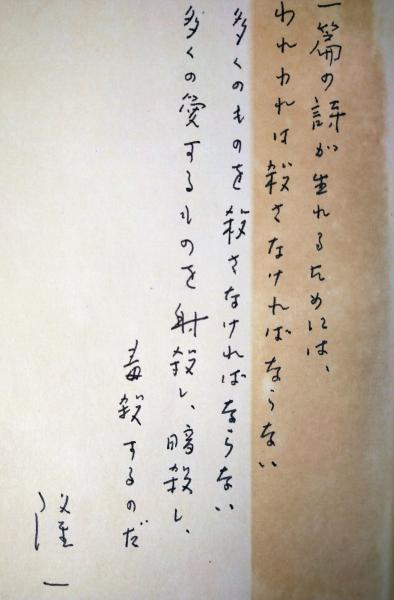 一篇の詩が生れるためには、
われわれは殺さなければならない
多くのものを殺さなければならない
多くの愛するものを射殺し、暗殺し、
毒殺するのだ
隆一